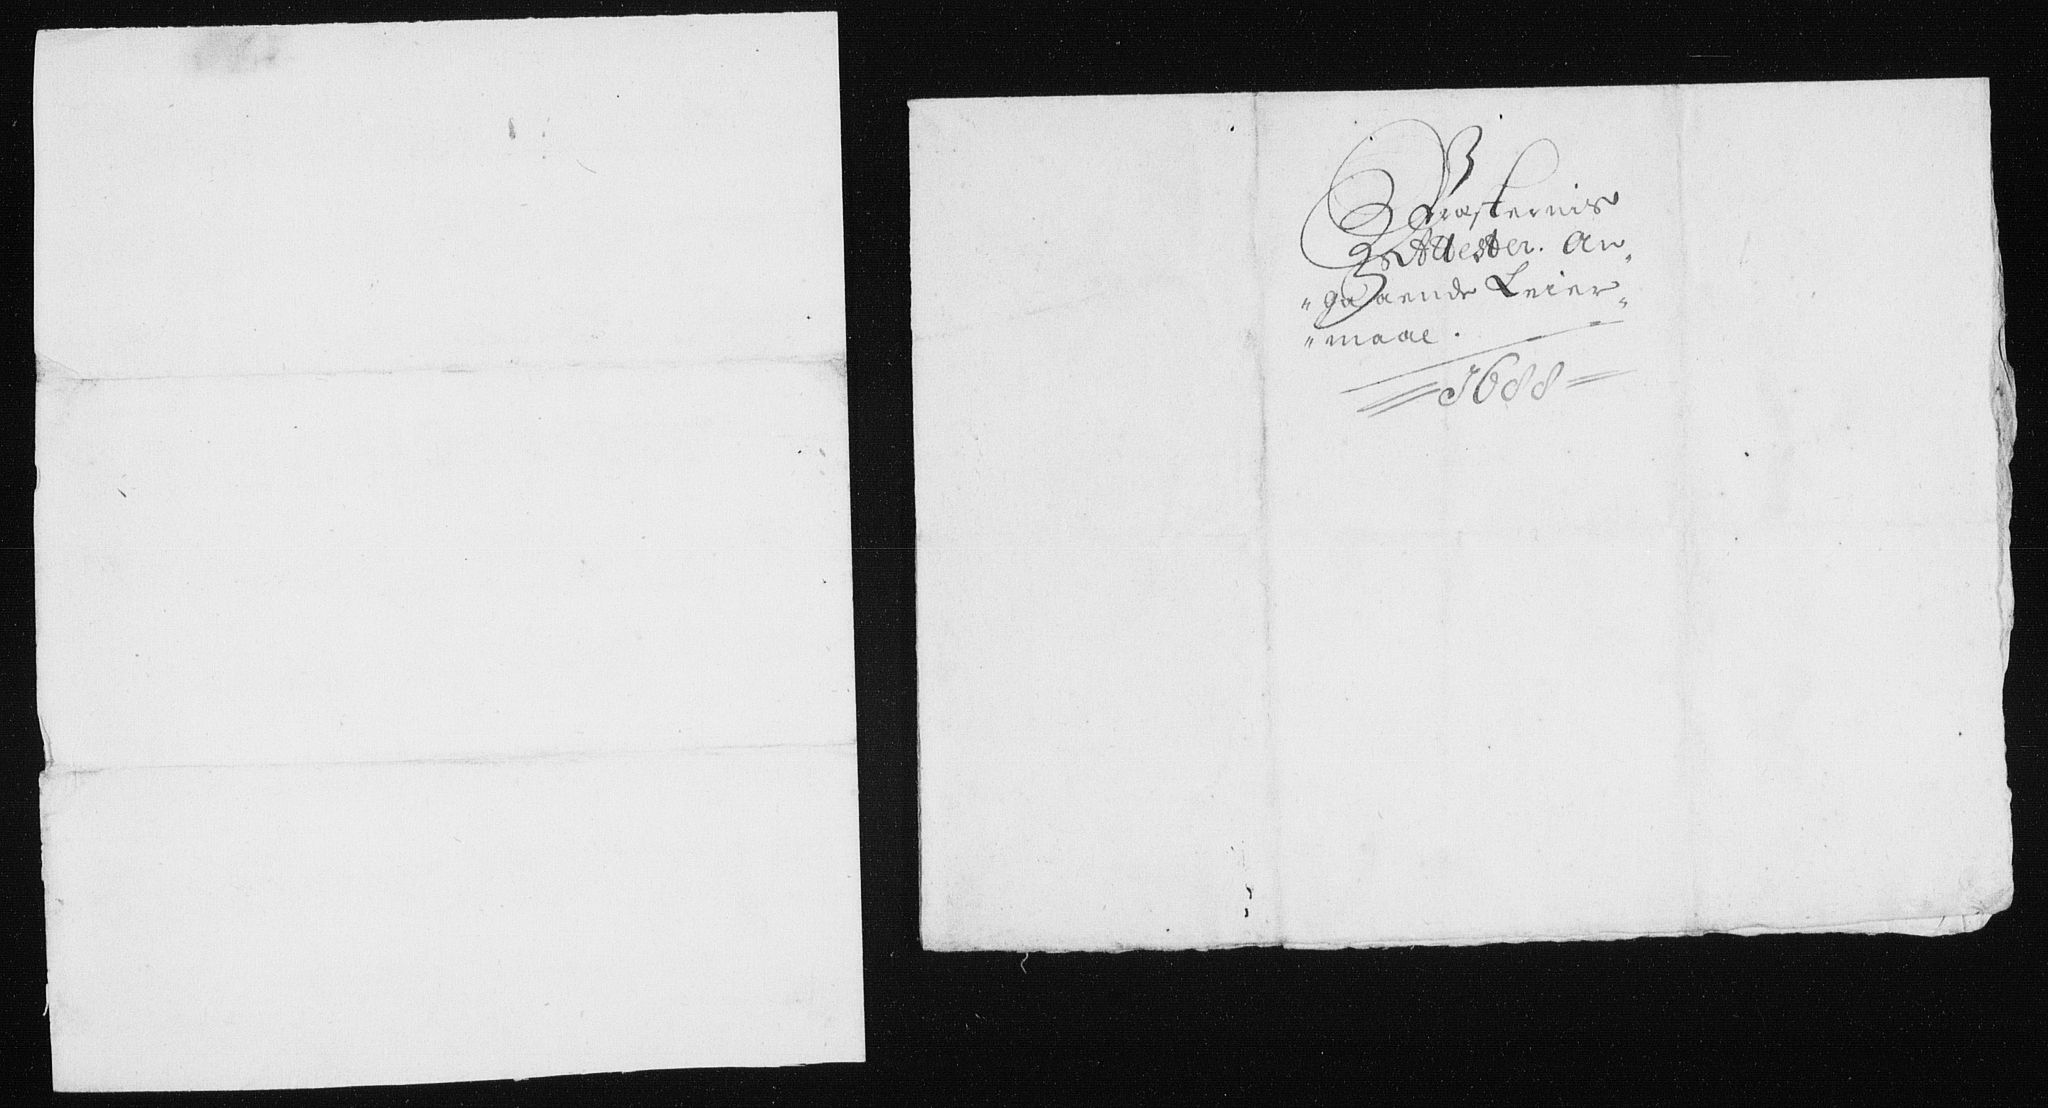 Præsternis
Attester. An„
„gaaende Leier„
„maal.
1688